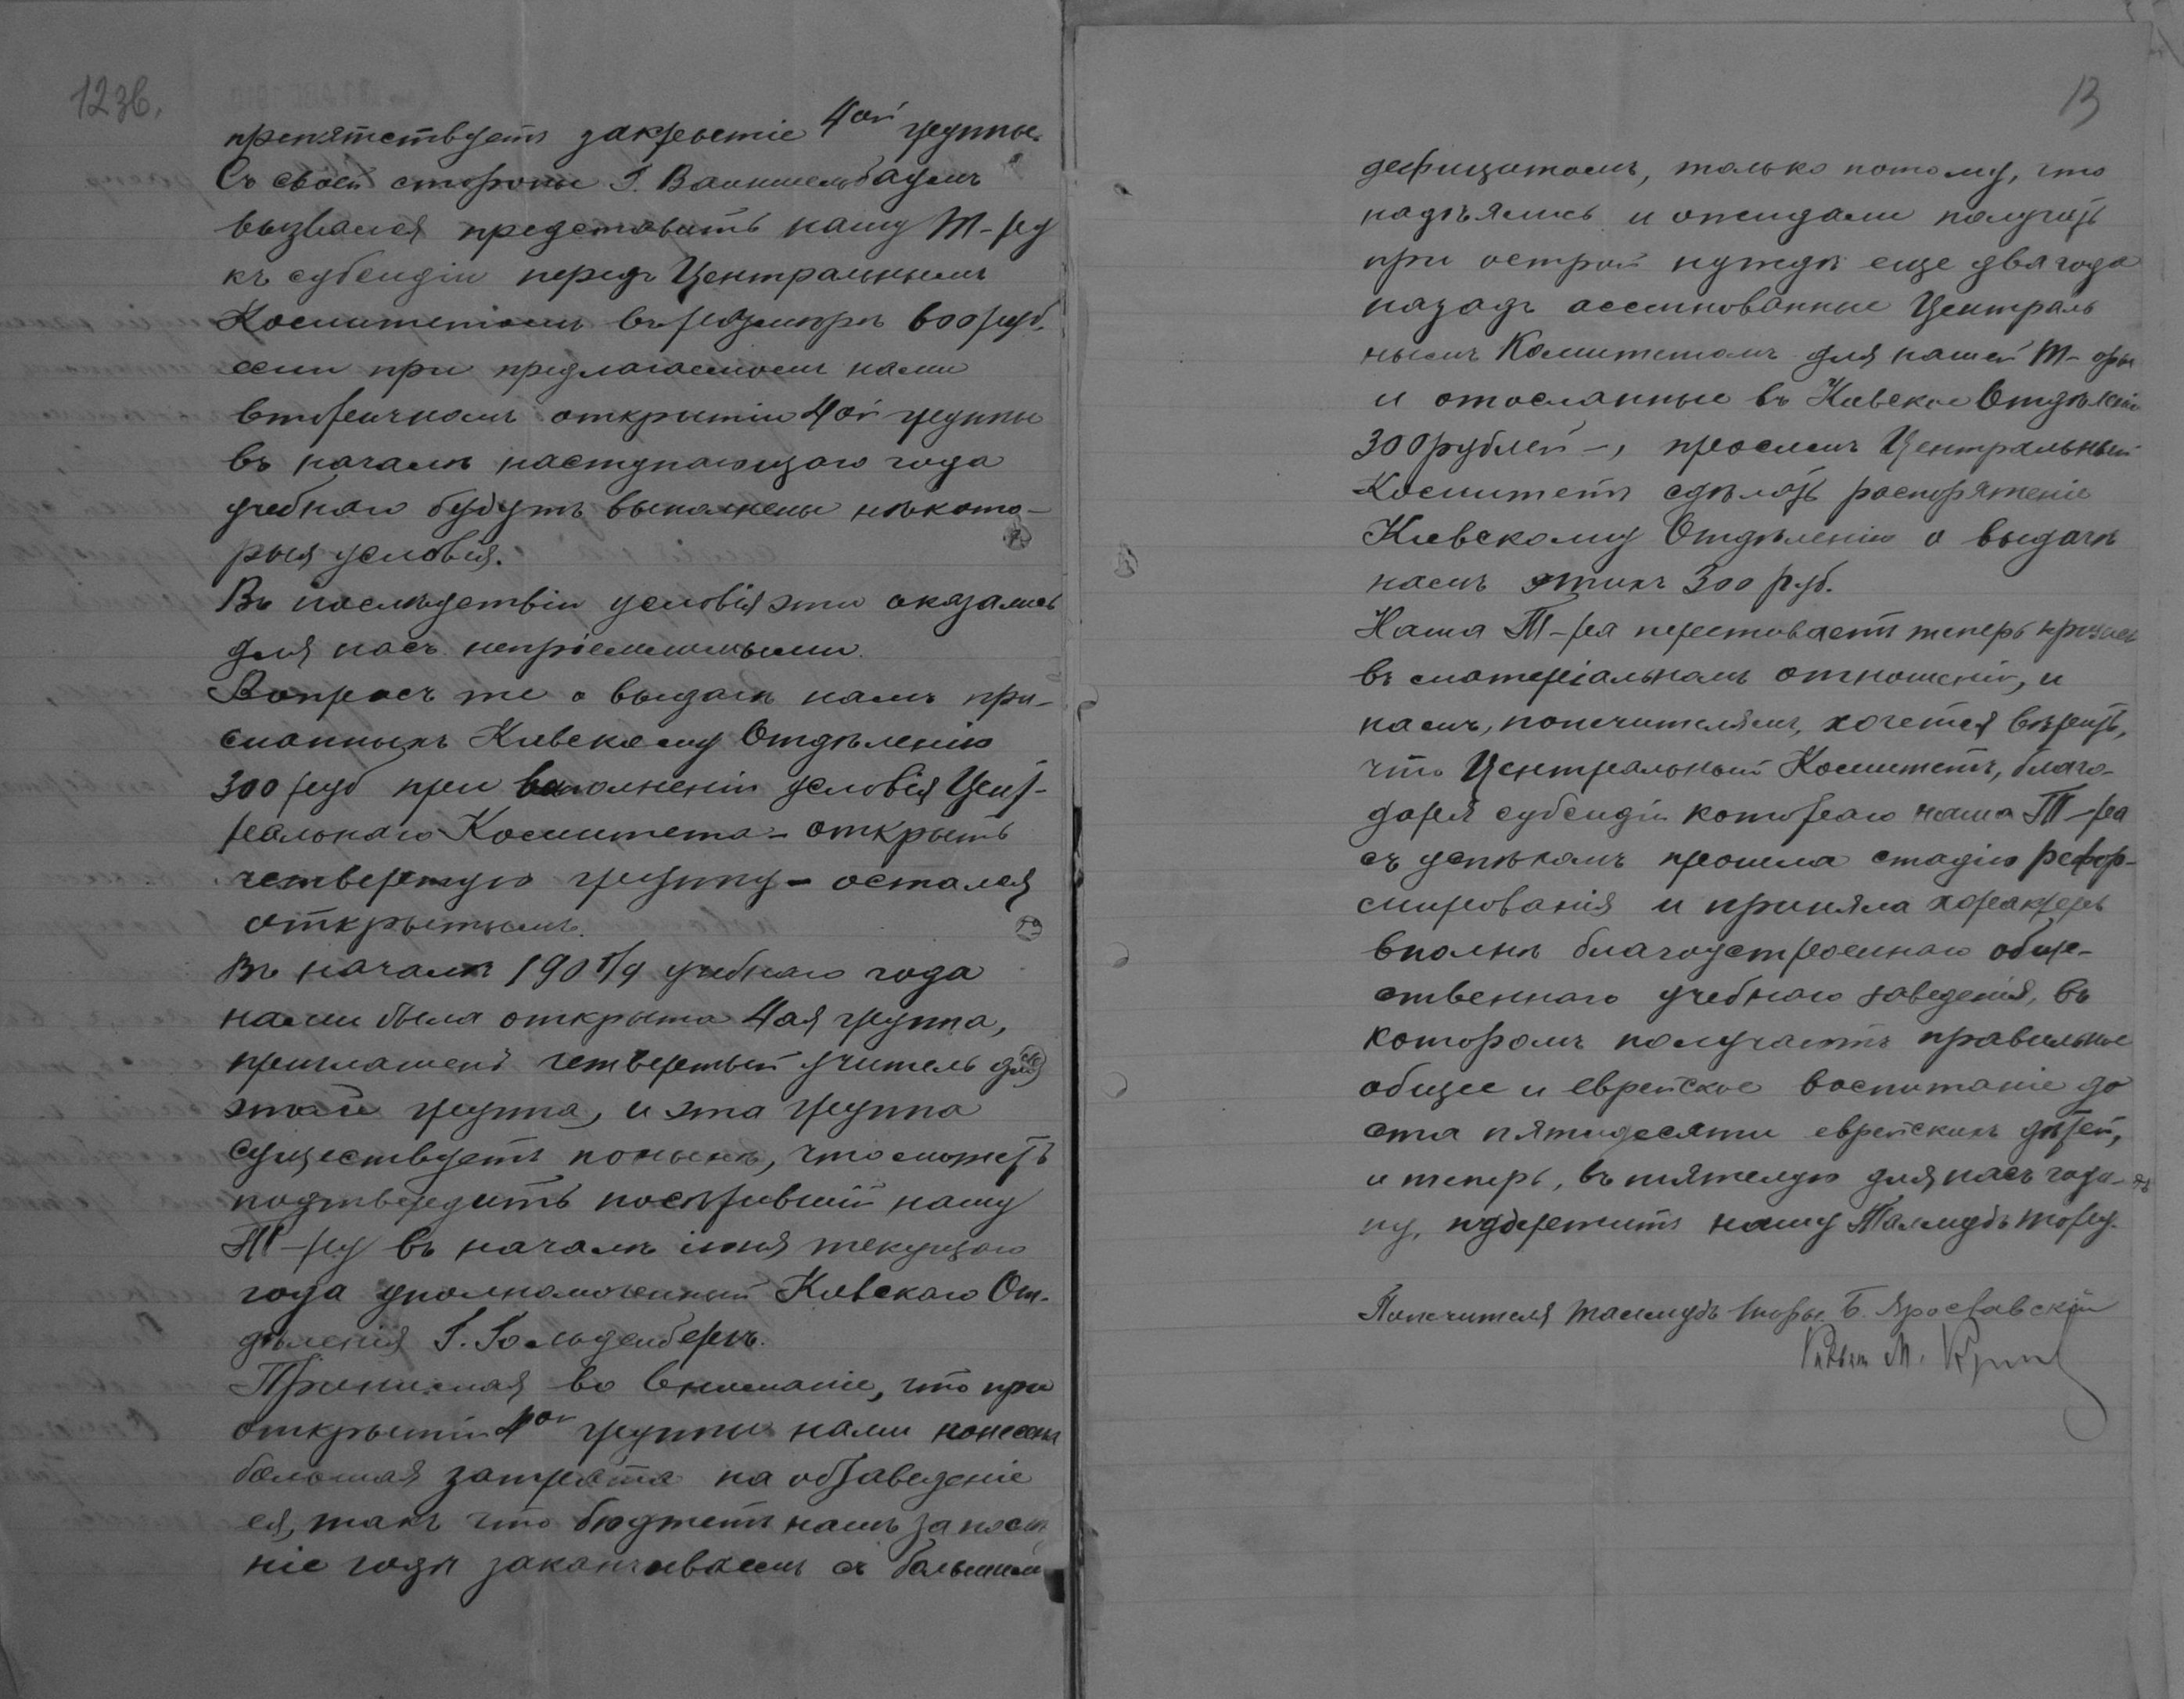 12 зв.
препятствуетъ закрытіе 4ой группы.
Съ своей стороны Г. Ванштельбаумъ
вызвался представить нашу Т-ру
къ субсидіи передъ Центральнымъ
Комитетомъ въ размѣрѣ 600 руб.
если при предлагаемомъ нами
вторичномъ открытіи 4ой группы
въ началѣ наступающаго года
учебнаго будутъ выполнены нѣкото-
рыя условія.
Въ послѣдствіи условія эти оказались
для насъ непріемлимыми.
Вопросъ же о выдачѣ намъ при-
сланныхъ Кіевскому Отдѣленію
300 руб при выполненіи условія Цент-
ральнаго Комитета - открыть
четвертую группу - остался
открытымъ.
Въ началѣ 1908/9 учебнаго года
нами была открыта 4ая группа,
приглашенъ четвертый учитель для
этой группа, и эта группа
существуетъ понынѣ, что можетъ
подтвердить посѣтившій нашу
Т-ру въ началѣ іюня текущаго
года уполномоченный Кіевскаго От-
дѣленія Г. Гольденбергъ.
Принимая во вниманіе, что при
открытіи 4ой группы нами понесена
большая затрата на обзаведеніе
ея, такъ что бюджетъ нашъ за послѣд
ніе годы заканчиваемъ съ большимъ
13
дефицитомъ, только потому, что
надѣялись и ожидали получить
при острой нуждѣ еще два года
назадъ ассигнованные Централь
нымъ Комитетомъ для нашей Т-оры
и отосланные въ Кіевское Отдѣленіе
300 рублей -, просимъ Центральный
Комитетъ сдѣлать распоряженіе
Кіевскому Отдѣленію о выдачѣ
намъ этихъ 300 руб.
Наша Т-ра переживаетъ теперь кризисъ
въ матеріальномъ отношеніи, и
намъ, попечителямъ, хочется вѣрить,
что Центральный Комитетъ, благо-
даря субсидіи котораго наша Т-ра
съ успѣхомъ прошла стадію рефор-
мированія и приняла характеръ
вполнѣ благоустроеннаго обще-
ственнаго учебнаго заведенія, въ
которомъ получаютъ правильное
общее и еврейское воспитаніе до
ста пятидесяти еврейскихъ дѣтей,
и теперь, въ тяжелую для насъ годи-
ну, поддержитъ нашу Талмудъ Тору.
Попечителя Талмудъ Торы Б. Ярославскій
М.